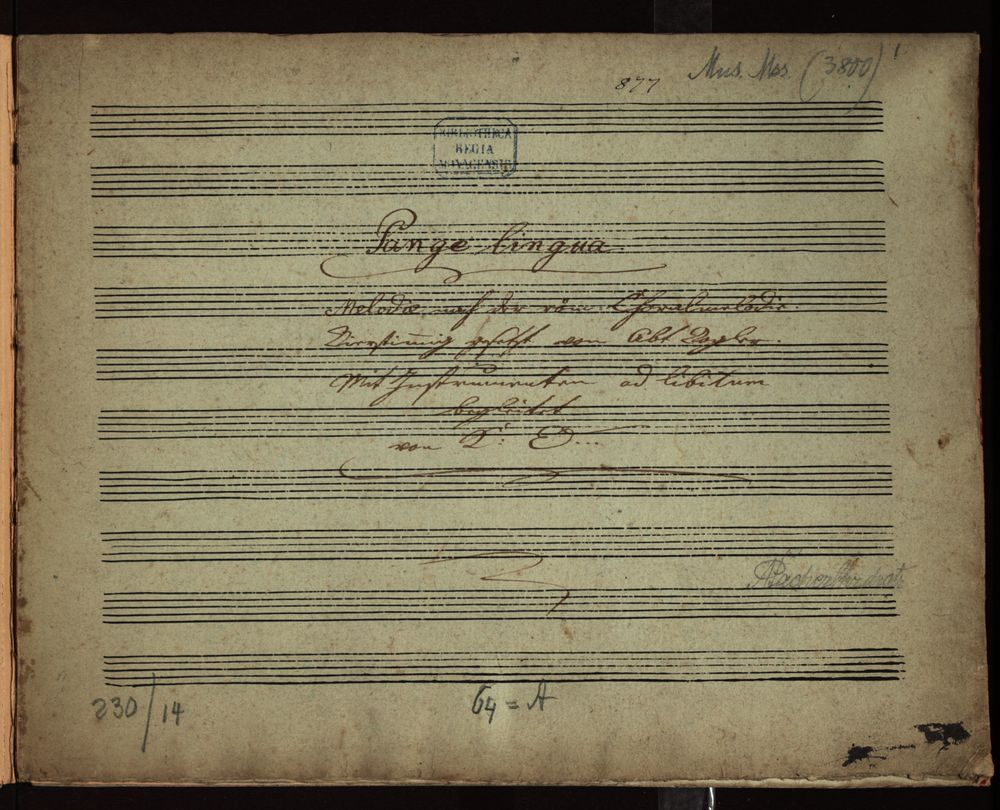 877 Mus. Mss. (3800) 1
BIBLIOTHECA
REGIA
MONACENSIS
Pange lingua.
Melodie nach der röm: Choralmelodie.
Vierstimmig gesetzt von Abt Vogler.
Mit Instrumenten ad libitum
begleitet
von
230/14
64 = A